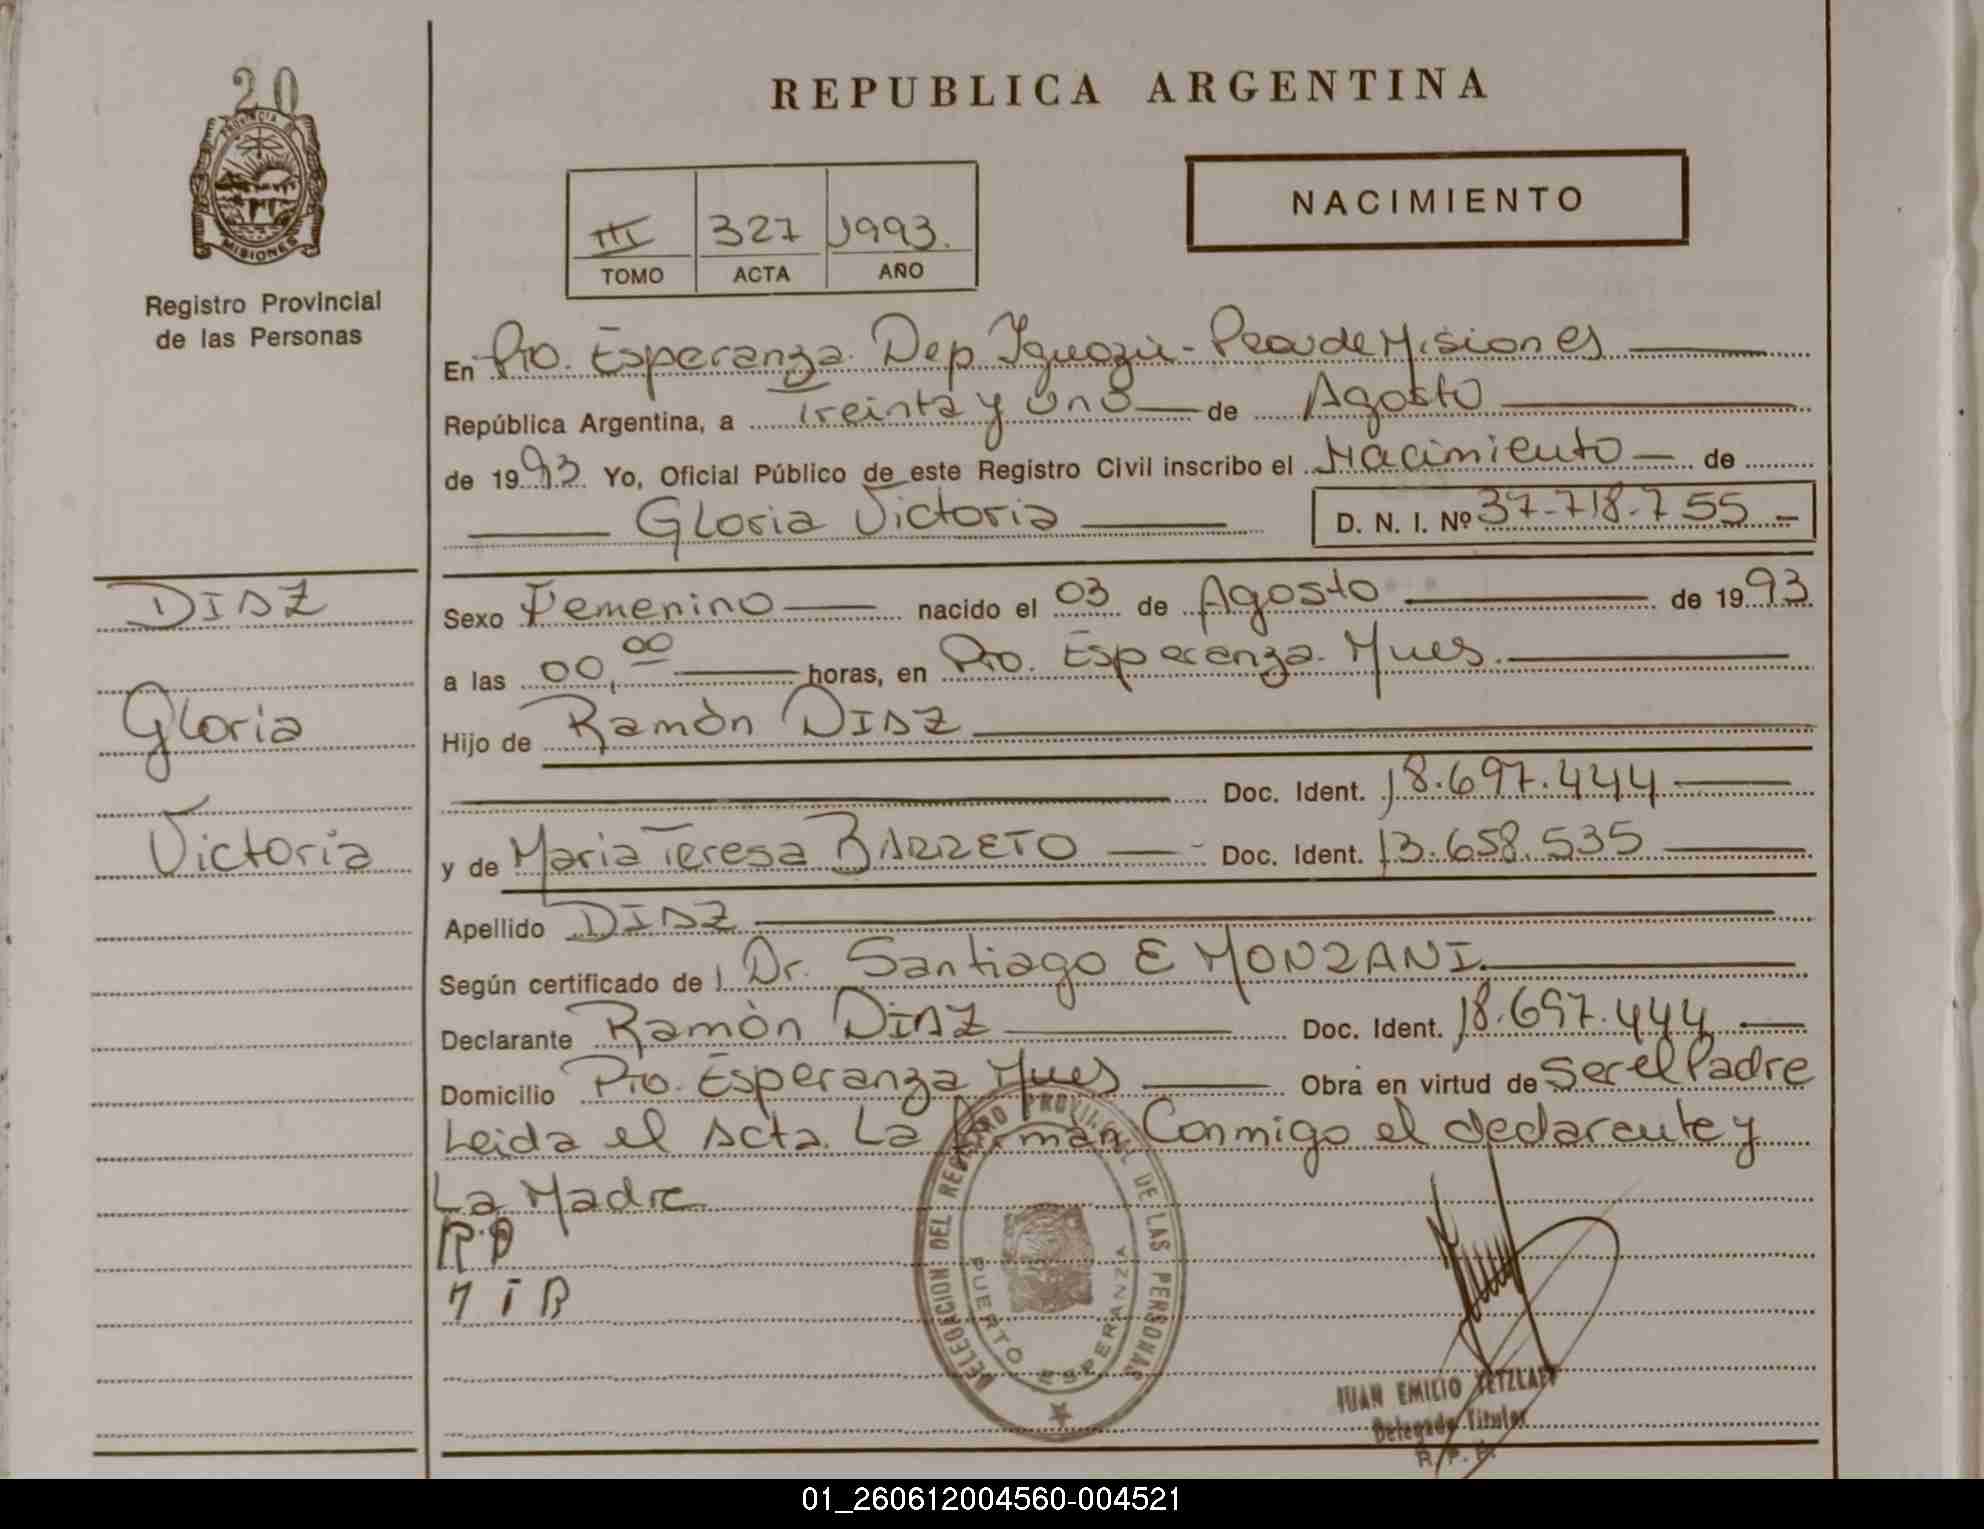 20
PROVINCIA DE
MISIONES
Registro Provincial
de las Personas
REPUBLICA ARGENTINA
III 327 1993.
TOMO ACTA AÑO
NACIMIENTO
En Pto. Esperanza. Dep. Iguazú - Pcia de Misiones
República Argentina, a Treinta y uno de Agosto
de 1993 Yo, Oficial Público de este Registro Civil inscribo el Nacimiento de
Gloria Victoria D. N. I. Nº 37-718-755 -
DIAZ
Gloria
Victoria
Sexo Femenino nacido el 03 de Agosto de 1993
a las 00,00 horas, en Pto. Esperanza. Mnes.
Hijo de Ramòn DIAZ
Doc. Ident. 18.697.444
y de Maria Teresa BARRETO Doc. Ident. 13.658.535
Apellido DIAZ
Según certificado de Dr. Santiago E MONZANI
Declarante Ramòn DIAZ Doc. Ident. 18.697.444
Domicilio Pto. Esperanza Mnes Obra en virtud de Ser el Padre
Leida el acta. La firman Conmigo el declarante y
La Madre
R.D
M T B
DELEGACION DEL REGISTRO PROVINCIAL DE LAS PERSONAS
PUERTO ESPERANZA
JUAN EMILIO RETZLAFF
Delegado Titular
R. P. P.
01_260612004560-004521